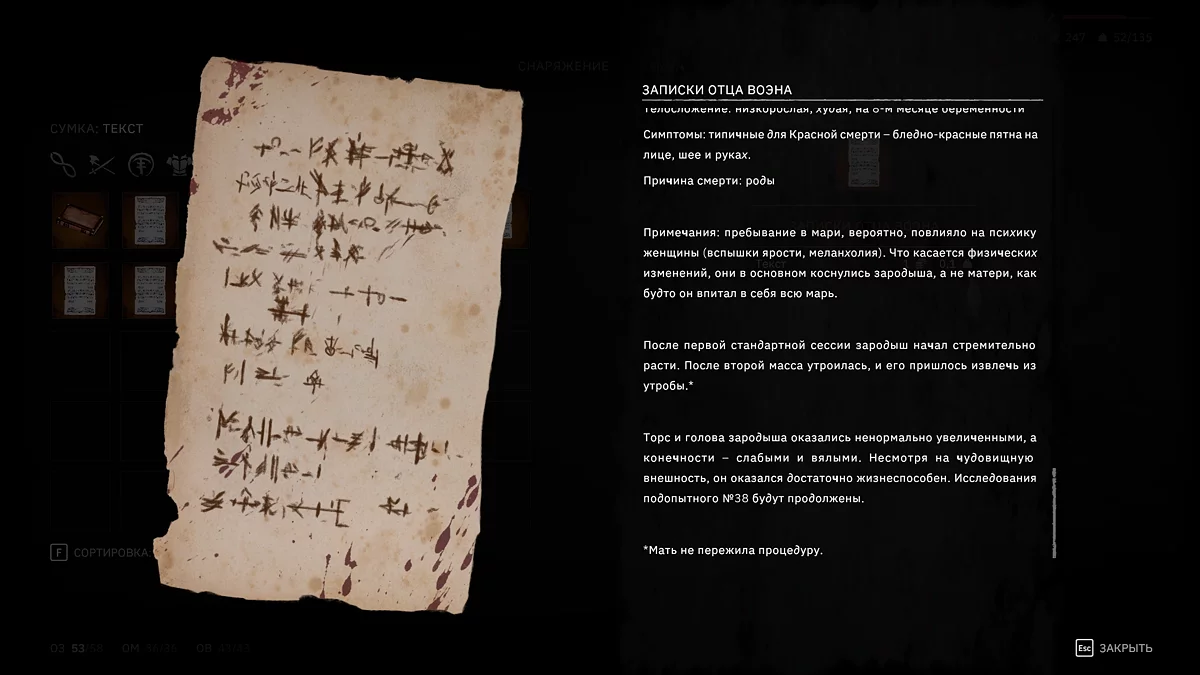 247 52/135
СНАРЯЖЕНИЕ
ЗАПИСКИ ОТЦА ВОЭНА
Телосложение: низкорослая, худая, на 8-м месяце беременности
СУМКА: ТЕКСТ
Симптомы: типичные для Красной смерти – бледно-красные пятна на
лице, шее и руках.
Причина смерти: роды
Примечания: пребывание в мари, вероятно, повлияло на психику
женщины (вспышки ярости, меланхолия). Что касается физических
изменений, они в основном коснулись зародыша, а не матери, как
будто он впитал в себя всю марь.
После первой стандартной сессии зародыш начал стремительно
расти. После второй масса утроилась, и его пришлось извлечь из
утробы.*
Торс и голова зародыша оказались ненормально увеличенными, а
конечности – слабыми и вялыми. Несмотря на чудовищную
внешность, он оказался достаточно жизнеспособен. Исследования
подопытного №38 будут продолжены.
*Мать не пережила процедуру.
F СОРТИРОВКА:
ОЗ 53 ОМ ОВ
Esc ЗАКРЫТЬ